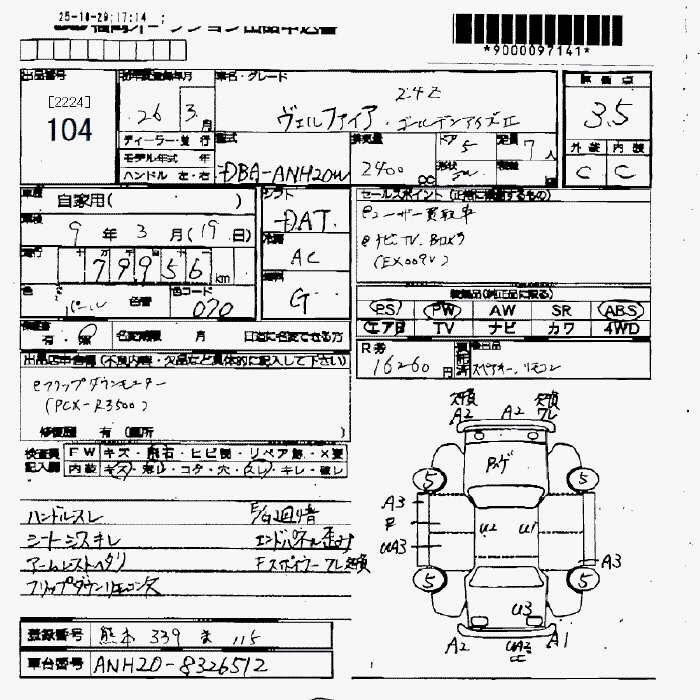 25-10-29;17:14 ;
*9000097141*
出品番号
[2224]
104
初年度登録年月
26 3月
車名・グレード
2.4Z
ヴェルファイア・ゴールデンアイズII
評価点
3.5
外装 内装
C C
ディーラー・並行
モデル年式 年
ハンドル 左・右
型式
DBA-ANH20W
排気量
2400 CC
ドア 5
形状
定員 7人
車歴 自家用( )
車検 9年3月(19日)
走行 79956 km
色 パール 色替
色コード 070
シフト
DAT
冷房
AC
燃料
G
セールスポイント(正常に機能するもの)
・ユーザー買取車
・ナビTV、Bカメラ
(EX009V)
装備品(純正品に限る)
PS PW AW SR ABS
エアB TV ナビ カワ 4WD
有・
名変期限 月 日迄に名変できる方
R券
16260円
スペアキー、リモコン
出品店申告欄(不良内容・欠品など具体的に記入して下さい)
・フリップダウンモニター
(PCX-R3500)
修復歴 有(箇所 )
検査員 FW キズ・飛石・ヒビ・リペア跡・X要
記入欄 内装 キズ・汚れ・コゲ・穴・スレ・キレ・破レ
ハンドルスレ
シートシミキレ
アームレストヘタリ
フリップダウンリモコン欠
エンドパネル歪み
A2 A2
5 5
A3
U2 U1
UA3
A3
5 5
U3
A2 UA2 A1
登録番号 熊本 339 ま 115
車台番号 ANH20-8326512